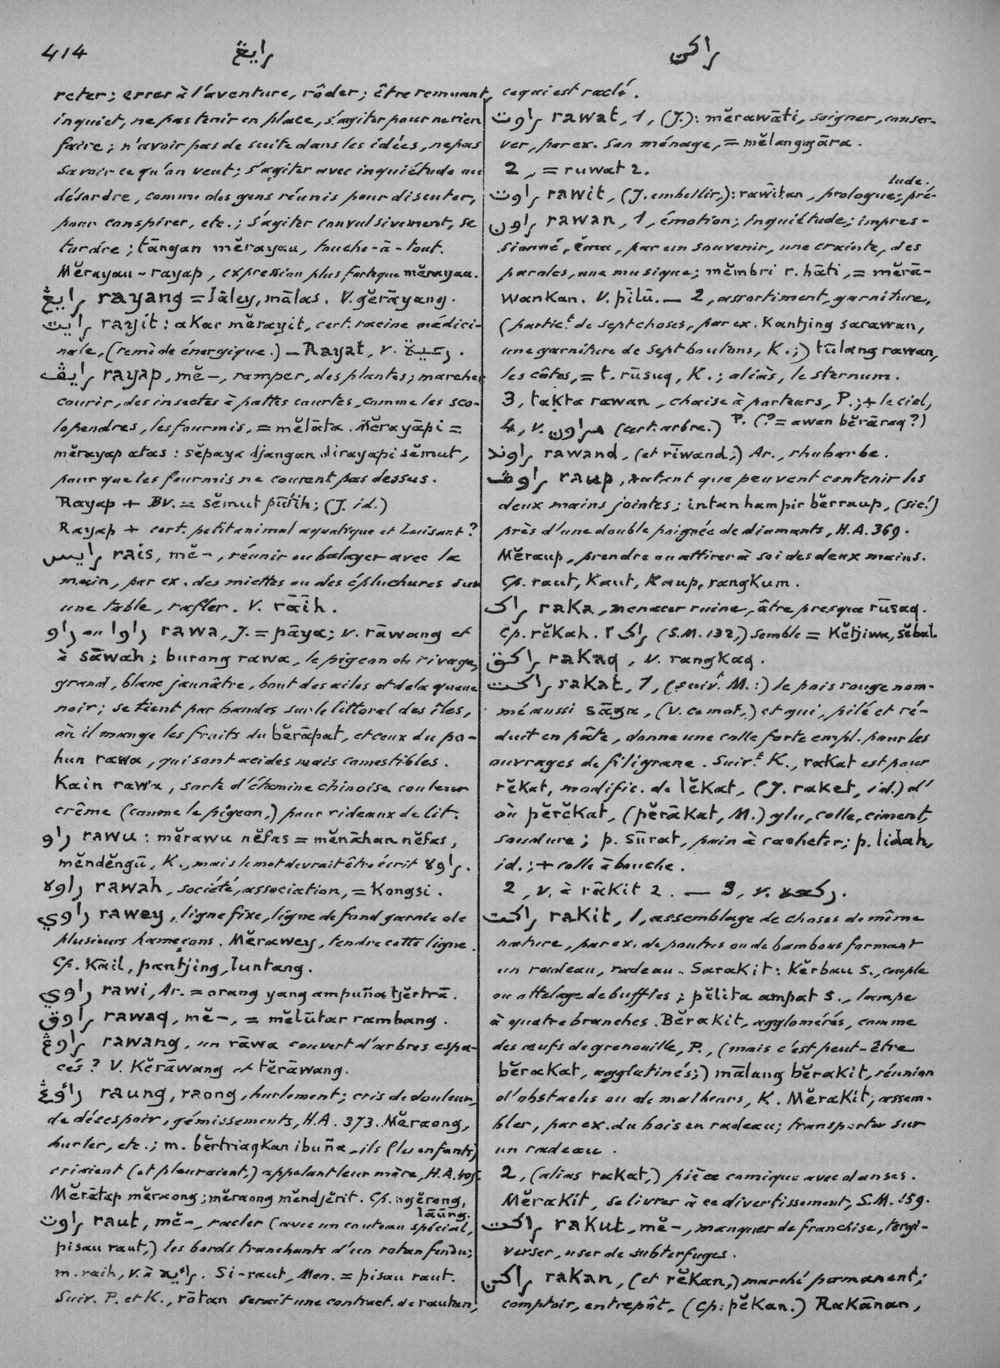 414 رايڠ راكن
reter; errer à l'aventure, rôder; être remuant,
inquiet, ne pas tenir en place, s'agiter pour ne rien
faire; n'avoir pas de suite dans les idées, ne pas
savoir ce qu'on veut; s'agiter avec inquiétude au
désordre, comme des gens réunis pour discuter,
pour conspirer, etc.; s'agiter convulsivement, se
tordre; tāngan mĕrayau, touche-à-tout.
Mĕrayau-rayap, expression plus forte que mĕrayau.
رايڠ rayang = lāley, mālas. V. gĕrāyang.
رايت rayit: akar mĕrayit, cert. racine médici-
nale, (remède énergique.) — Rayat, v. رعية.
رايڤ rayap, mĕ-, ramper, des plantes; marcher
courir, des insectes à pattes courtes, comme les sco-
lopendres, les fourmis, = mĕlāta. Mĕrayāpi =
mĕrayap atas: sĕpaya djangan dirayapi sĕmut,
pour que les fourmis ne courent pas dessus.
Rayap + Bv. = sĕmut pūtih; (J. id.)
Rayap + cert. petit animal aquatique et luisant?
رايس rais, mĕ-, réunir ou balayer avec la
main, par ex. des miettes ou des épluchures sur
une table, rafler. V. rāīh.
راو ou راوا rawa, J. = pāya; v. rāwang et
à sāwah; burong rawa, le pigeon de rivage,
grand, blanc jaunâtre, bout des ailes et de la queue
noir; se tient par bandes sur le littoral des îles,
où il mange les fruits du bĕrāpat, et ceux du po-
hun rawa, qui sont acides mais comestibles.
Kain rawa, sorte d'étamine chinoise couleur
crême (comme le pigeon,) pour rideaux de lit.
راو rawu: mĕrawu nĕfas = mĕnāhan nĕfas,
mĕndĕngū, K., mais le mot devrait être écrit راوه.
راوه rawah, société, association, = Kongsi.
راوي rawey, ligne fixe, ligne de fond garnie de
plusieurs hameçons. Mĕrawey, tendre cette ligne.
Cp. Kāil, pantjing, luntang.
راوي rawi, Ar. = orang yang ampuña tjĕrtrā.
راوق rawaq, mĕ-, = mĕlūtar rambang.
راوڠ rawang, un rāwa couvert d'arbres espa-
cés? V. Kĕrāwang et tĕrāwang.
راوڠ raung, raong, hurlement; cris de douleur,
de désespoir, gémissements, H.A. 373. Mĕraong,
hurler, etc.; m. bĕrtriagkan ibuña, ils (les enfants)
criaient (et pleuraient,) appelant leur mère, H.A. 405.
Mĕrātap mĕraong; mĕraong mĕndjĕrit. Cp. ngĕrong,
lāūng.
راوت raut, mĕ-, racler (avec un couteau spécial,
pisau raut,) les bords tranchants d'un rotan fendu;
m. raih, v. à رايه. Si-raut, Men. = pisau raut.
Suiv. P. et K., rōtan serait une contract. de rautan,
ce qui est raclé.
راوت rawat, 1, (J.): mĕrawāti, soigner, conser-
ver, par ex. son ménage, = mĕlanggāra.
2, = ruwat 2.
راوت rawit, (J. embellir,): rawītan, prologue; pré-
lude.
راون rawan, 1, émotion; inquiétude; impres-
sionné, ému, par un souvenir, une crainte, des
paroles, une musique; mĕmbri r. hāti, = mĕrā-
wankan. V. pīlū. — 2, assortiment, garniture,
(particᵗ de sept choses, par ex. Kantjing sarawan,
une garniture de sept boutons, K.;) tūlang rawan,
les côtes, = t. rūsuq, K.; aliàs, le sternum.
3, takta rawan, chaise à porteurs, P.; + le ciel,
P. (? = awan bĕrāraq?)
4, v. مراون (cert. arbre.)
راوند rawand, (et rīwand,) Ar., rhubarbe.
راوڤ raup, autant que peuvent contenir les
deux mains jointes; intan hampir bĕrraup, (sic!)
près d'une double poignée de diamants, H.A. 369.
Mĕraup, prendre ou attirer à soi des deux mains.
Cp. raut, Kaut, Kaup, rangkum.
راک raka, menacer ruine, être presque rūsaq.
Cp. rĕkah. راک ٢ (S.M. 132,) semble = Kĕtjiwa, sĕbal.
راكق rakaq, v. rangkaq.
راكت rakat, 1, (suivᵗ M.:) le pois rouge nom-
mé aussi sāga, (v. ce mot,) et qui, pilé et ré-
duit en pâte, donne une colle forte empl. pour les
ouvrages de filigrane. Suivᵗ K., rakat est pour
rĕkat, modific. de lĕkat, (J. raket, id.) d'
où pĕrĕkat, (pĕrākat, M.) glu, colle, ciment,
soudure; p. sūrat, pain à cacheter; p. lidah,
id.; + colle à bouche.
2, v. à rākit 2. — 3, v. ركعة.
راكت rakit, 1, assemblage de choses de même
nature, par ex. de poutres ou de bambous formant
un radeau, radeau. Sarakit: Kĕrbau s., couple
ou attelage de buffles; pĕlita ampat s., lampe
à quatre branches. Bĕrakit, agglomérés, comme
des œufs de grenouille, P., (mais c'est peut-être
bĕrakat, agglutinés;) mālang bĕrakit, réunion
d'obstacles ou de malheurs, K. Mĕrakit, assem-
bler, par ex. du bois en radeau; transporter sur
un radeau.
2, (aliàs rakat,) pièce comique avec danses.
Mĕrakit, se livrer à ce divertissement, S.M. 159.
راكت rakut, mĕ-, manquer de franchise, tergi-
verser, user de subterfuges.
راكن rakan, (et rĕkan,) marché permanent;
comptoir, entrepôt, (cp: pĕkan.) Rakānan,